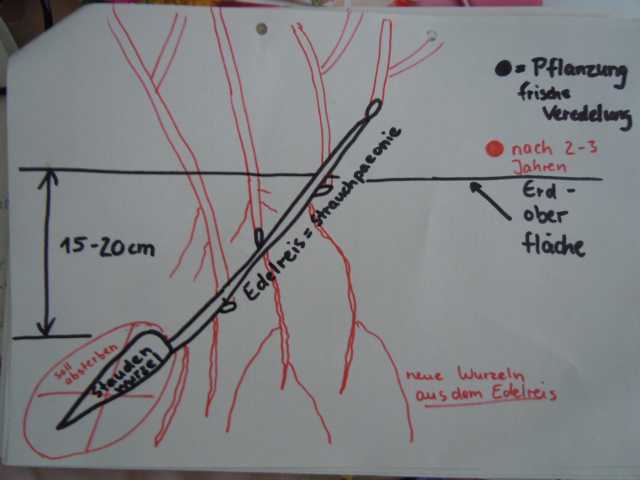 = Pflanzung
frische
Veredelung
nach 2-3
Jahren
Erd-
ober
fläche
15-20cm
Edelreis = Strauchpaeonie
soll
absterben
Stauden
wurzel
neue Wurzeln
aus dem Edelreis